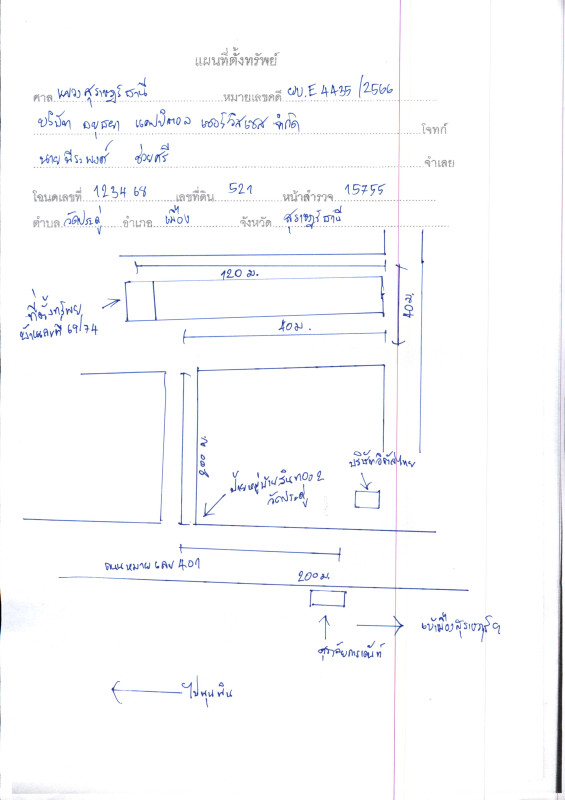 แผนที่ตั้งทรัพย์
ศาล แขวงสุราษฎร์ธานี หมายเลขคดี ผบ.E4435/2566
บริษัท อยุธยา แคปปิตอล เซอร์วิสเซส จำกัด โจทก์
นาย พีระพงศ์ ช่วยศรี จำเลย
โฉนดเลขที่ 123468 เลขที่ดิน 521 หน้าสำรวจ 15755
ตำบล วัดประดู่ อำเภอ เมือง จังหวัด สุราษฎร์ธานี
120 ม.
ที่ตั้งทรัพย์
บ้านเลขที่ 69/74
40 ม.
40 ม.
200 ม.
บริษัทอีซูซุไทย
ป้ายหมู่บ้านสินทอง 2
วัดประดู่
ถนนหมายเลข 401
200 ม.
เข้าเมืองสุราษฎร์ฯ
ไปพุนพิน